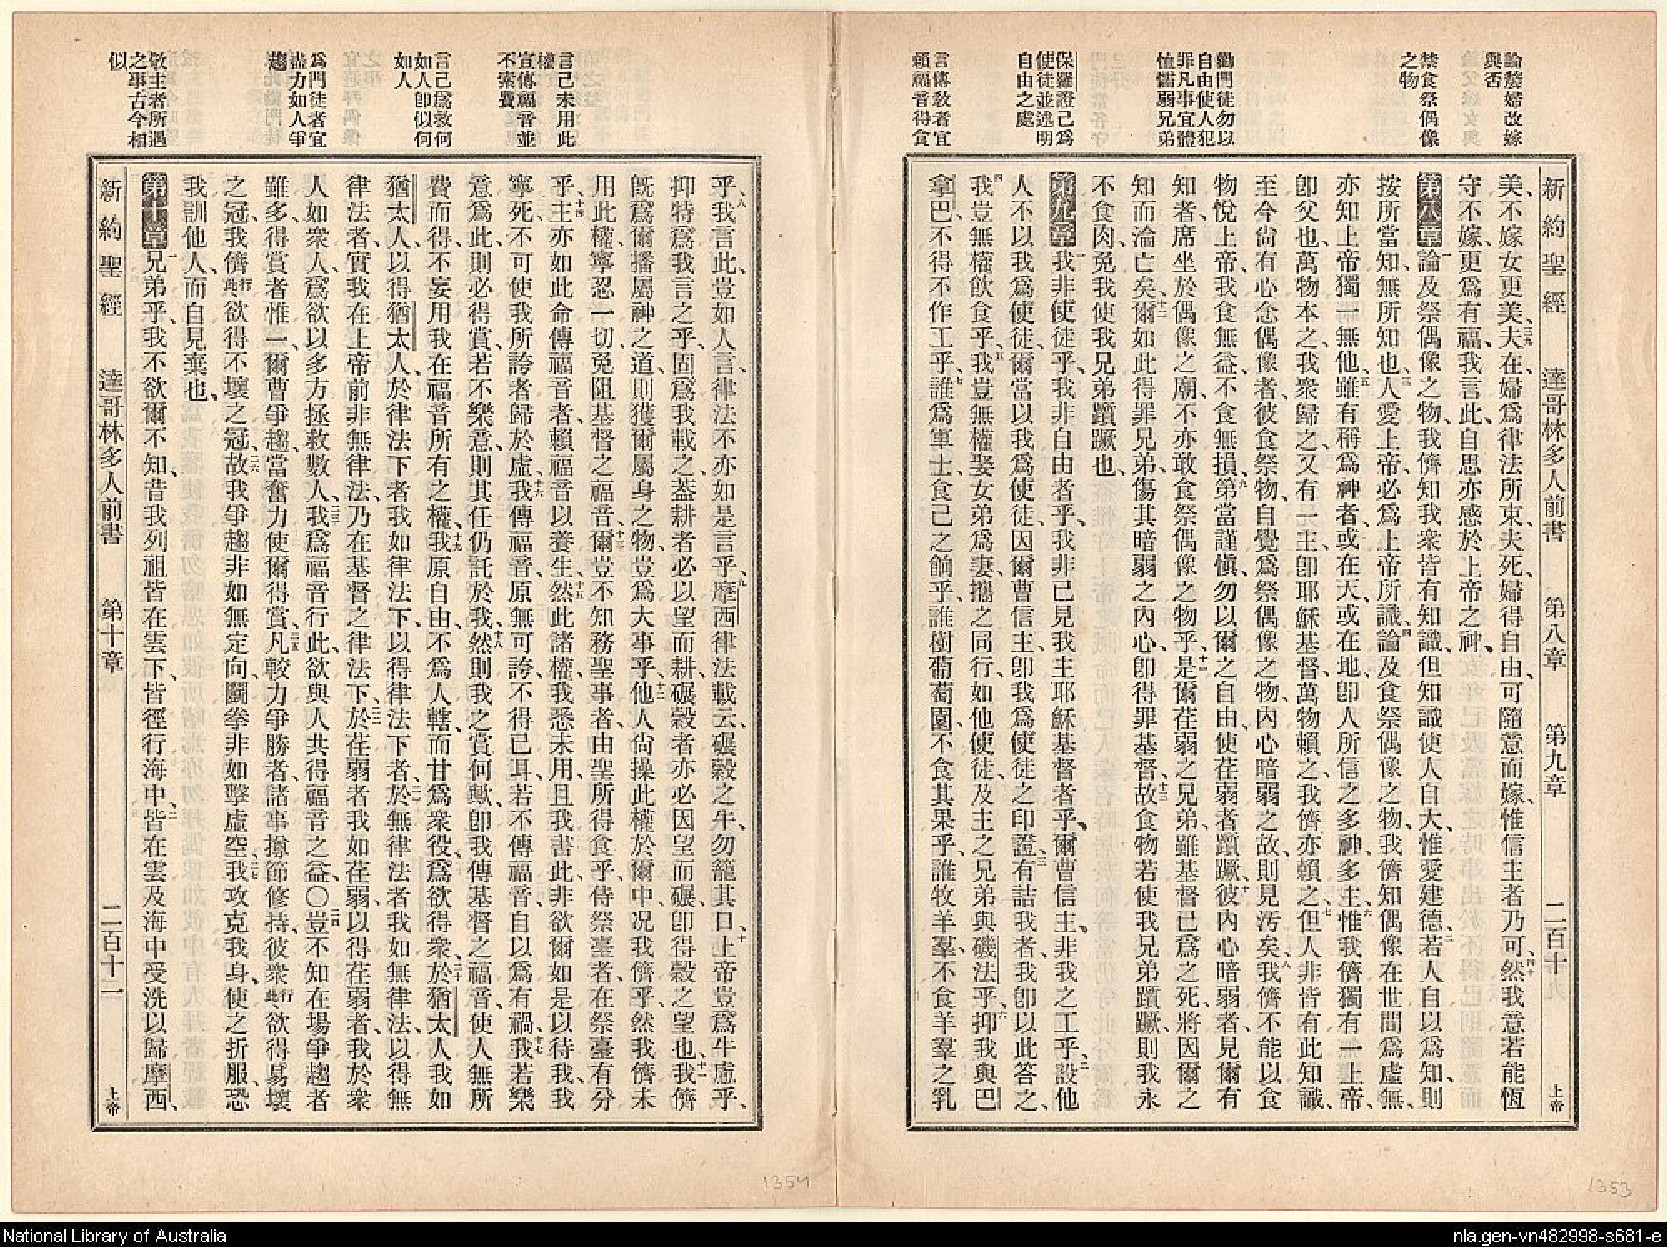 論嫠婦改嫁
與否
禁食祭偶像
之物
勸門徒勿以
自由使人犯
罪凡事宜體
恤懦弱兄弟
保羅證己爲
使徒並逃明
自由之處
言傳教者宜
賴福音得食
新約聖經 達哥林多人前書 第八章 第九章 二百十一 上帝
美、不嫁女更美、三九夫在、婦爲律法所束、夫死、婦得自由、可隨意而嫁、惟信主者乃可、四十然我意若能恆
守不嫁、更爲有福、我言此、自思亦感於上帝之神、
第八章一論及祭偶像之物、我儕知我衆皆有知識、但知識使人自大、惟愛建德、二若人自以爲知、則
按所當知、無所知也、三人愛上帝、必爲上帝所識、四論及食祭偶像之物、我儕知偶像在世間爲虛無、
亦知上帝獨一無他、五雖有稱爲神者、或在天、或在地、卽人所信之多神多主、六惟我儕獨有一上帝、
卽父也、萬物本之、我衆歸之、又有一主、卽耶穌基督、萬物賴之、我儕亦賴之、七但人非皆有此知識、
至今尚有心念偶像者、彼食祭物、自覺爲祭偶像之物、內心暗弱之故、則見汚矣、八我儕不能以食
物悅上帝、我食無益、不食無損、九第當謹愼、勿以爾之自由、使荏弱者躓蹶、十彼內心暗弱者、見爾有
知者、席坐於偶像之廟、不亦敢食祭偶像之物乎、十一是爾荏弱之兄弟、雖基督已爲之死、將因爾之
知而淪亡矣、十二爾如此得罪兄弟、傷其暗弱之內心、卽得罪基督、十三故食物若使我兄弟躓蹶、則我永
不食肉、免我使我兄弟躓蹶也、
第九章一我非使徒乎、我非自由者乎、我非己見我主耶穌基督者乎、爾曹信主、非我之工乎、二設他
人不以我爲使徒、爾當以我爲使徒、因爾曹信主、卽我爲使徒之印證、三有詰我者、我卽以此答之、
四我豈無權飲食乎、五我豈無權娶女弟爲妻、攜之同行、如他使徒、及主之兄弟、與磯法乎、六抑我與巴
拿巴、不得不作工乎、七誰爲軍士、食己之餉乎、誰樹葡萄園、不食其果乎、誰牧羊羣、不食羊羣之乳
言己未用此
權
宣傳福音並
不索費
言己爲救何
如人卽似何
如人
爲門徒者宜
盡力如人爭
趨
敬主者所遇
之事古今相
似
乎、八我言此、豈如人言、律法不亦如是言乎、九摩西律法載云、碾穀之牛、勿籠其口、十上帝豈爲牛慮乎、
抑特爲我言之乎、固爲我載之、蓋耕者必以望而耕、碾穀者亦必因望而碾、卽得穀之望也、十一我儕
旣爲爾播屬神之道、則獲爾屬身之物、豈爲大事乎、十二他人尙操此權於爾中、况我儕乎、然我儕未
用此權、寧忍一切、免阻基督之福音、十三爾豈不知務聖事者、由聖所得食乎、侍祭臺者、在祭臺有分
乎、十四主亦如此、命傳福音者、賴福音以養生、十五然此諸權、我悉未用、且我書此、非欲爾如是以待我、我
寧死、不可使我所誇者歸於虛、十六我傳福音、原無可誇、不得已耳、若不傳福音、自以爲有禍、十七我若樂
意爲此、則必得賞、若不樂意、則其任仍託於我、十八然則我之賞何歟、卽我傳基督之福音、使人無所
費而得、不妄用我在福音所有之權、十九我原自由、不爲人轄、而甘爲衆役、爲欲得衆、二十於猶太人、我如
猶太人、以得猶太人、於律法下者、我如律法下、以得律法下者、二一於無律法者、我如無律法、以得無
律法者、實我在上帝前、非無律法、乃在基督之律法下、二二於荏弱者、我如荏弱、以得荏弱者、我於衆
人如衆人、爲欲以多方拯救數人、二三我爲福音行此、欲與人共得福音之益、〇二四豈不知在場爭趨者
雖多、得賞者惟一、爾曹爭趨、當奮力使爾得賞、二五凡較力爭勝者、諸事撙節修持、彼衆行此欲得易壞
之冠、我儕行此欲得不壞之冠、二六故我爭趨、非如無定向、鬭拳、非如擊虛空、二七我攻克我身、使之折服、恐
我訓他人、而自見棄也、
第十章一兄弟乎、我不欲爾不知、昔我列祖皆在雲下、皆徑行海中、二皆在雲及海中受洗、以歸摩西、
新約聖經 達哥林多人前書 第十章 二百十二 上帝
1354
1353
National Library of Australia
nla.gen-vn482998-s681-e